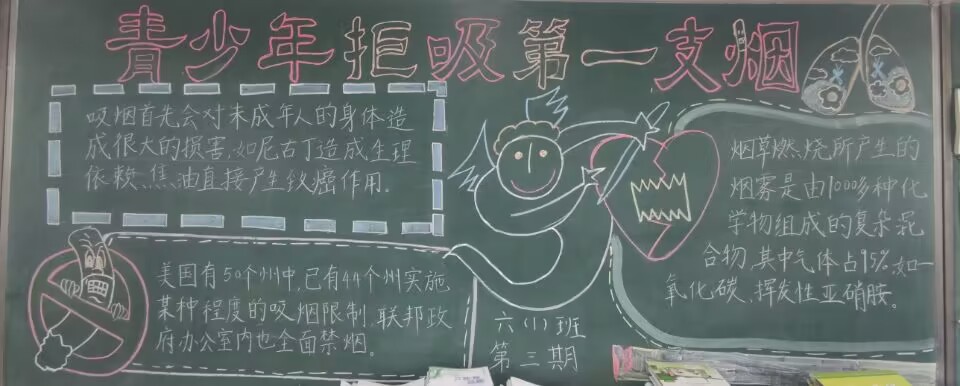 青少年拒吸第一支烟
吸烟首先会对未成年人的身体造
成很大的损害,如尼古丁造成生理
依赖、焦油直接产生致癌作用.
美国有50个州中,已有44个州实施
某种程度的吸烟限制,联邦政
府办公室内也全面禁烟。
六(1)班
第三期
烟草燃烧所产生的
烟雾是由1000多种化
学物组成的复杂混
合物,其中气体占95%,如一
氧化碳、挥发性亚硝胺。